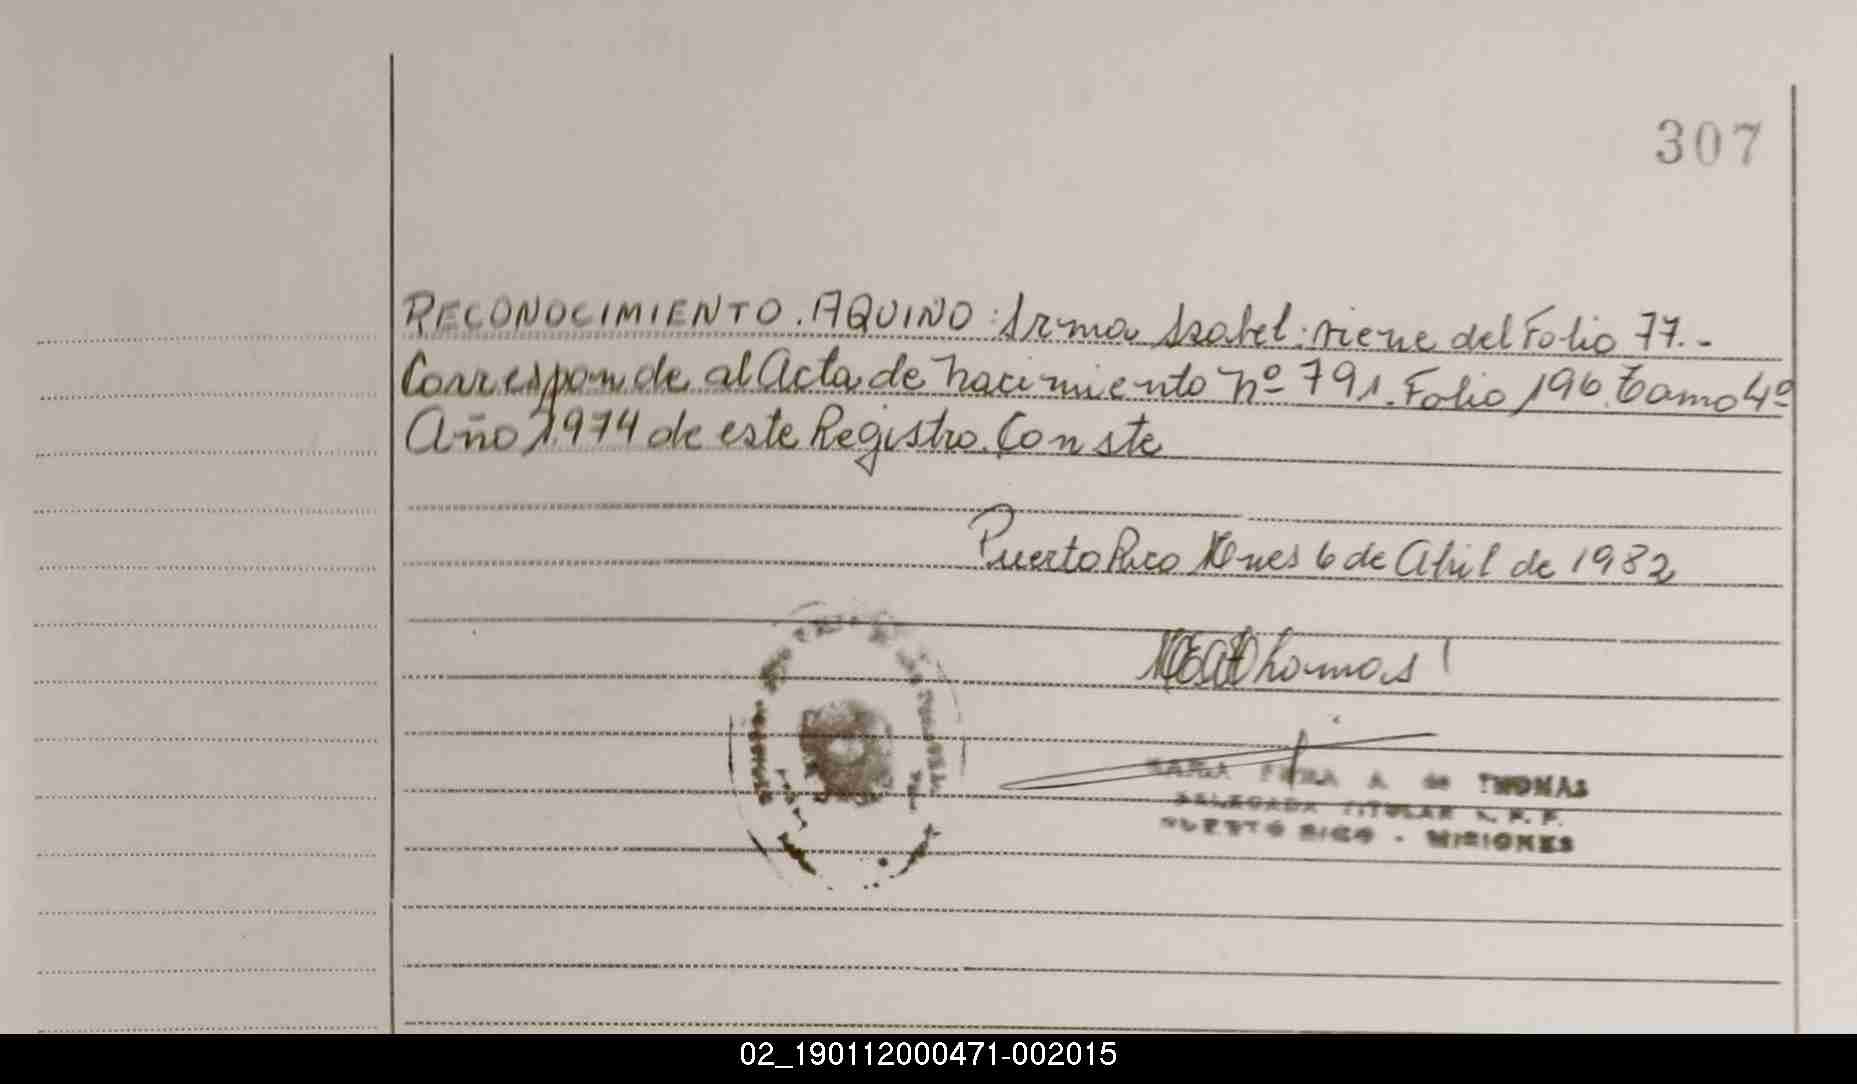 307
RECONOCIMIENTO. AQUINO: Irma Isabel: viene del Folio 77.-
Corresponde al Acta de nacimiento nº 791. Folio 196. Tomo 4º
Año 1974 de este Registro. Conste
Puerto Rico Mnes 6 de Abril de 1982
Thomas
MARIA A. de THOMAS
DELEGADA TITULAR R. P. P.
PUERTO RICO - MISIONES
02_190112000471-002015